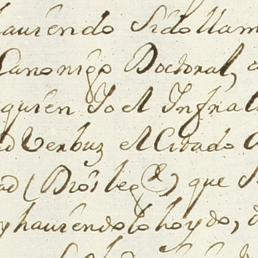 haviendo sido llam
Canonigo Doctoral,
quien Yo el Infra
ad Verbuz el Citado
ad (Dros beg) que
y haviendolo hoydo,